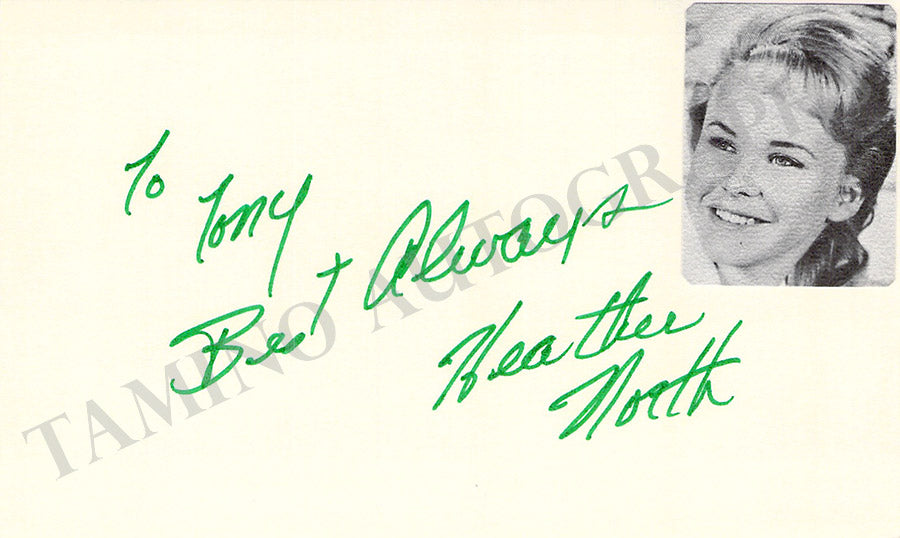 To Tony
Best Always
Heather
North
TAMINO AUTOGRAPHS